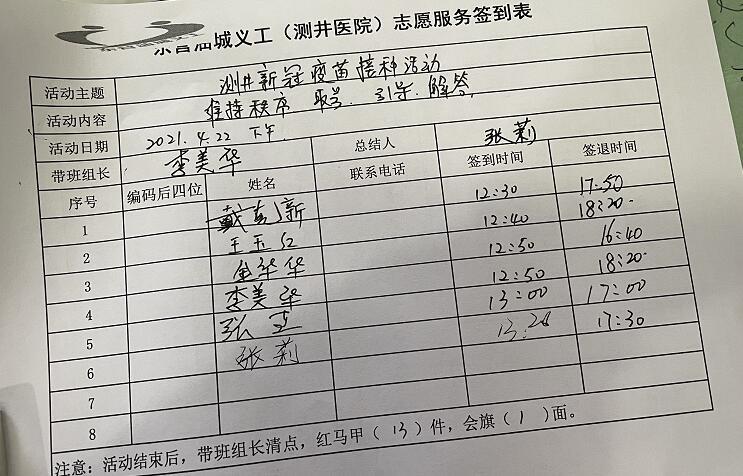 城义工(测井医院)志愿服务签到表
活动主题 测井新冠疫苗接种活动
活动内容 维持秩序 取号、引导、解答
活动日期 2021.4.22 下午
带班组长 李美华 总结人 张莉
序号 编码后四位 姓名 联系电话 签到时间 签退时间
1 12:30 17:50
2 王玉红 12:40 18:20
3 华华 12:50 16:40
4 李美华 12:50 18:20
5 张 13:00 17:00
6 张莉 13:20 17:30
7
8
注意:活动结束后,带班组长清点,红马甲(13)件,会旗(1)面。